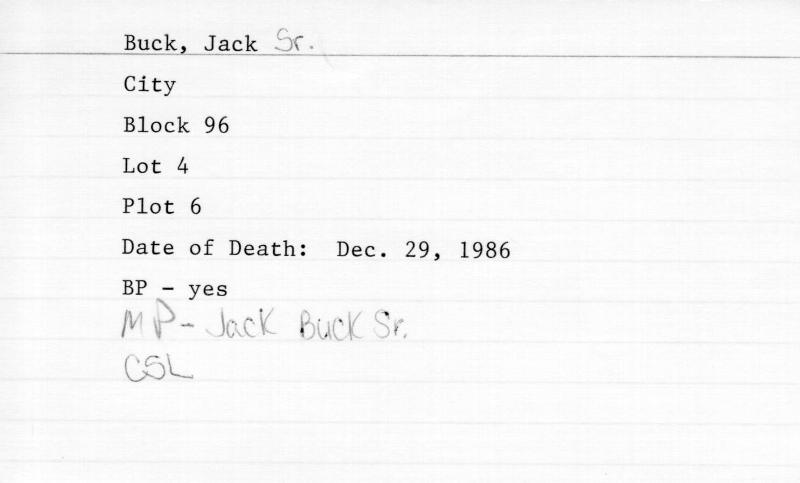 Buck, Jack Sr.
City
Block 96
Lot 4
Plot 6
Date of Death: Dec. 29, 1986
BP - yes
MP - Jack Buck Sr.
CSL